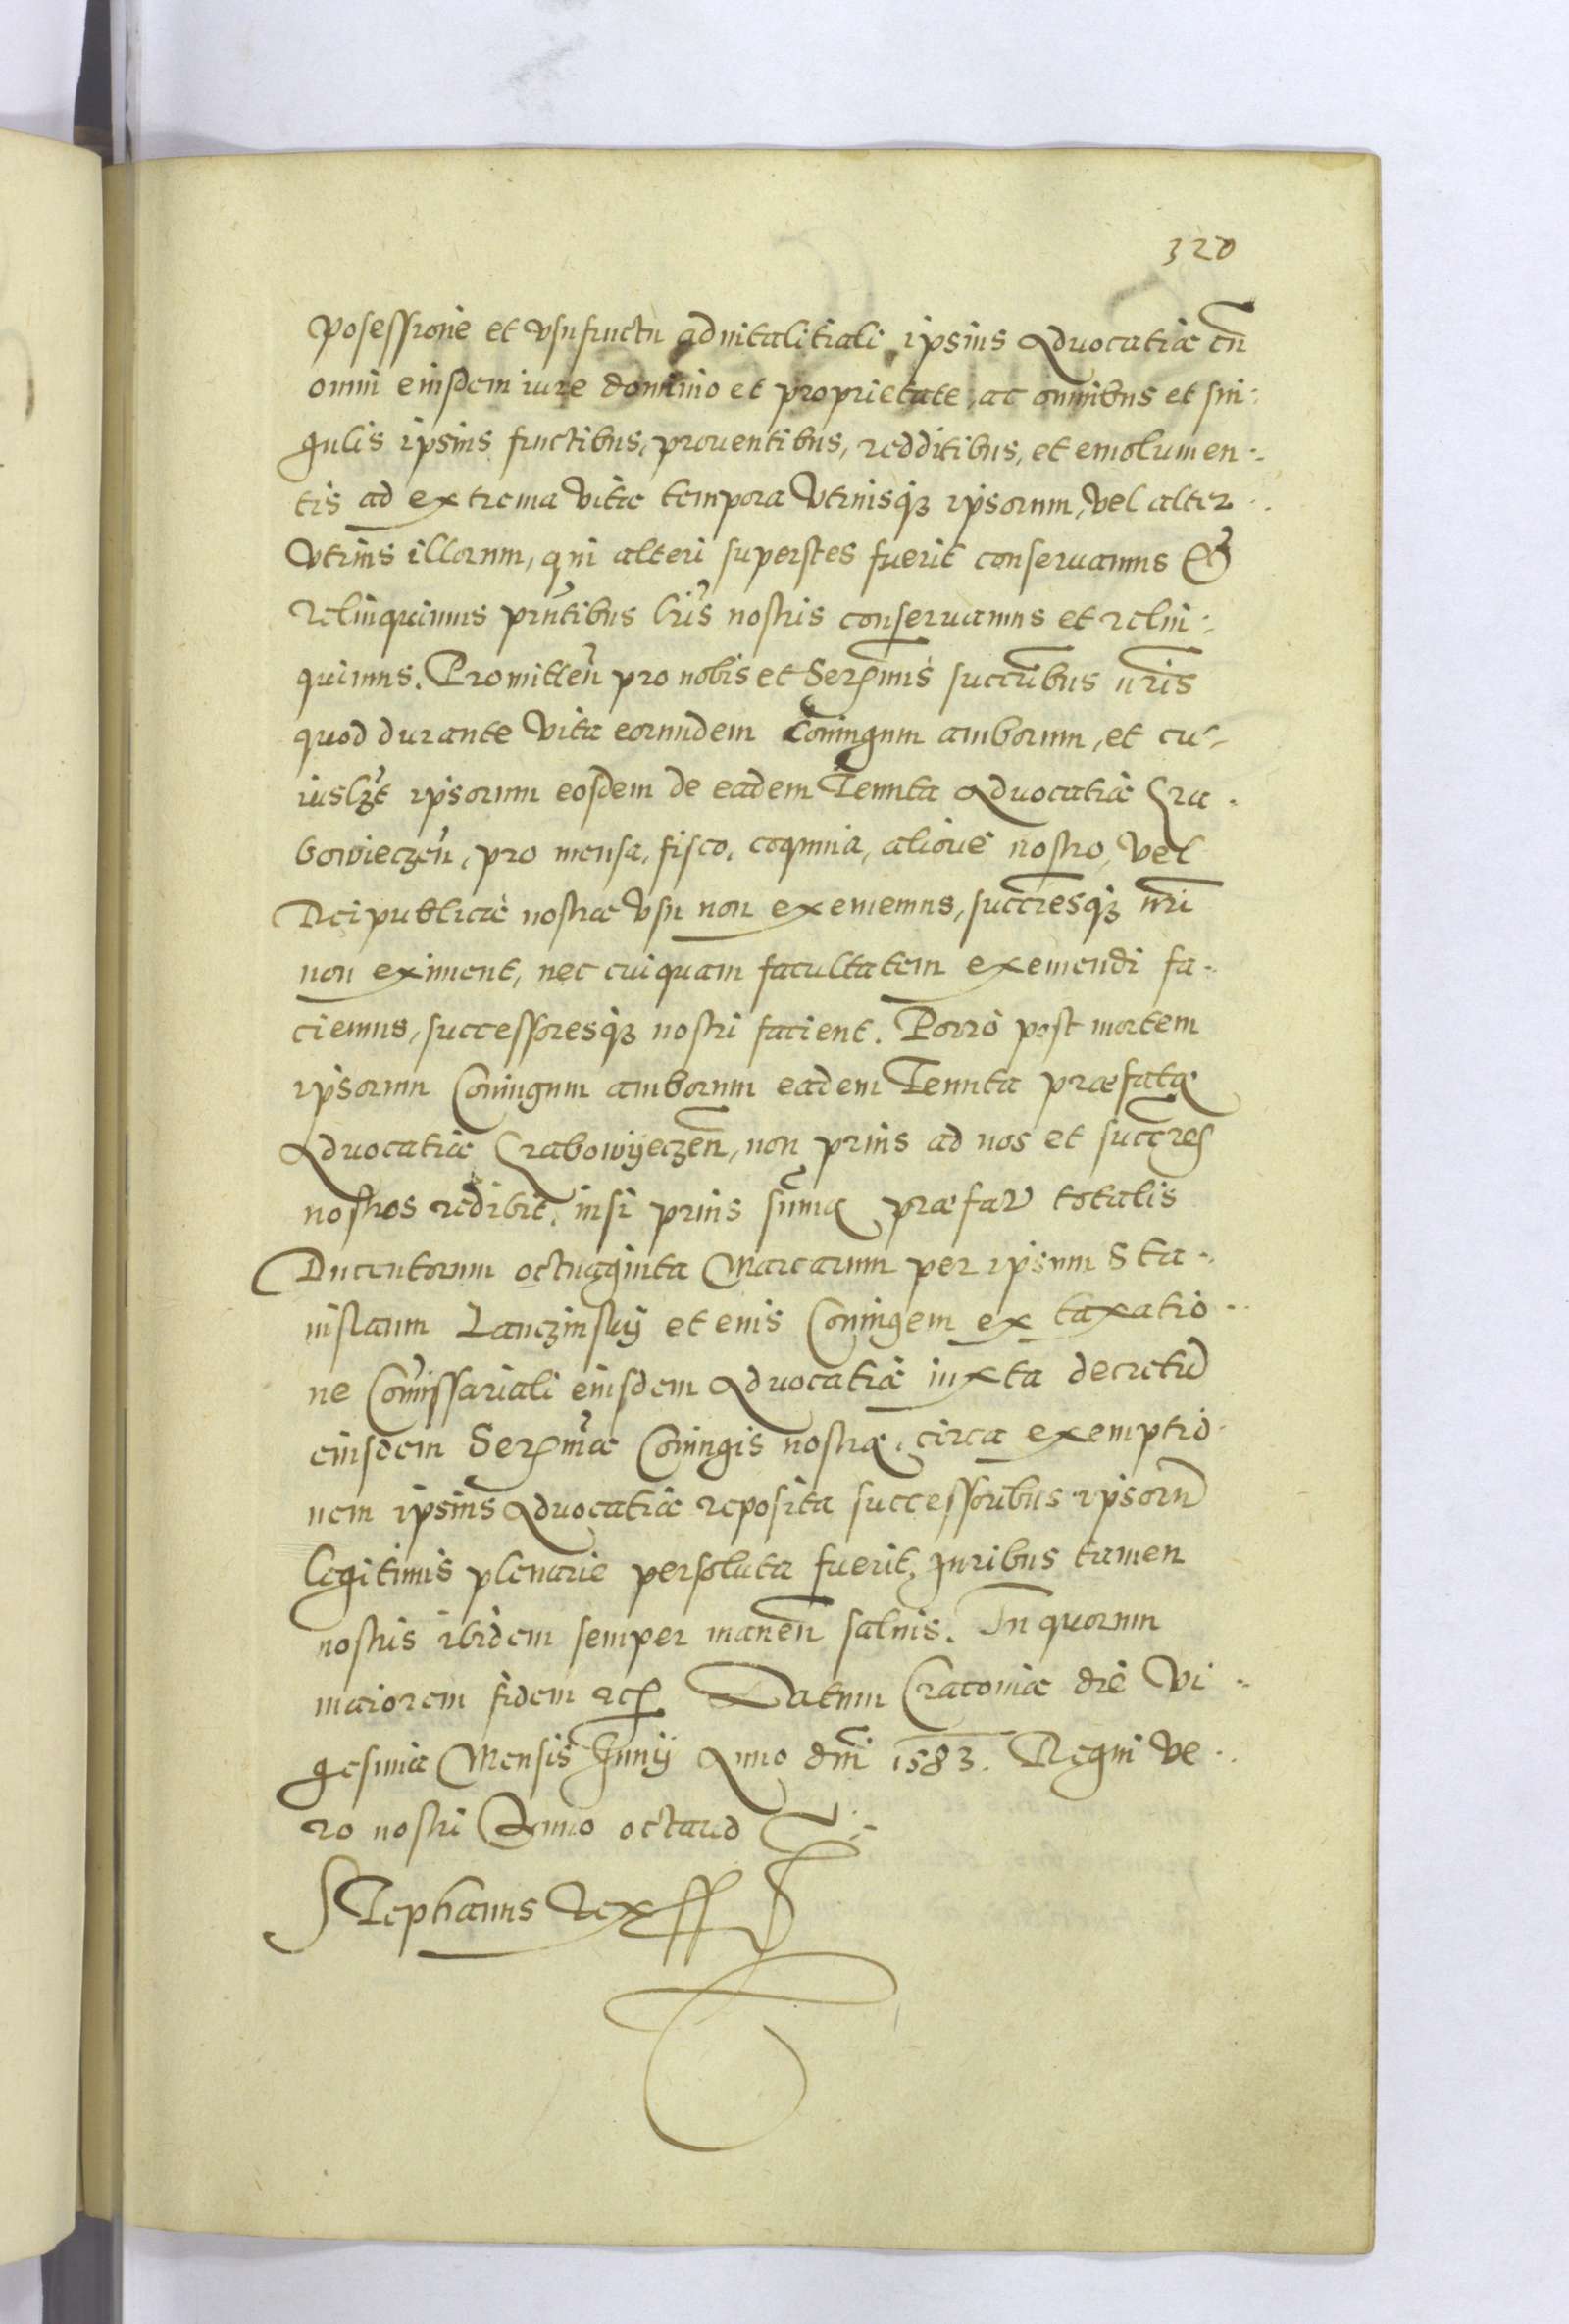 320
posessione et vsufructu aduitalitiali ipsius Aduocatiæ cũ
omni eiusdem iure dominio et proprietate, ac omnibus et sin-
gulis ipsius fructibus, prouentibus, redditibus, et emolumen-
tis ad extrema vitæ tempora vtriusq3 ipsorum, vel alter-
vtrius illorum, qui alteri superstes fuerit conseruamus &
relinquimus pñtibus lris nostris conseruamus et relin-
quimus. Promitteñ pro nobis et Sermis succribus nris
quod durante vita eorundem Coniugum amborum, et cu-
iuslzt ipsorum eosdem de eadem Tenuta Aduocatiæ Gra-
bowieczeñ, pro mensa, fisco, coquinia, alioue nostro, vel
Reipublicæ nostræ vsu non exememus, succresq3 nri
non eximent, nec cuiquam facultatem exemendi fa-
ciemus, successoresq3 nostri facient. Porrò post mortem
ipsorum Coniugum amborum eadem Tenuta præfatæ
Aduocatiæ Grabowyeczeñ, non prius ad nos et succres
nostros redibit, nisi prius sum̃a præfat totalis
Ducentorum octuaginta Marcarum per ipsum Sta-
nislaum Lanczinsky et eius Coniugem ex taxatio-
ne Com̃issariali eiusdem Aduocatiæ iuxta decretũ
eiusdem Sermæ Coniugis nostræ, circa exemptio-
nem ipsius Aduocatiæ reposita successoribus ipsorũ
legitimis plenarie persoluta fuerit, Iuribus tamen
nostris ibidem semper maneñ saluis. In quorum
maiorem fidem etc. Datum Cracouiæ die Vi-
gesima Mensis Junij Anno dni 1583. Regni ve-
ro nostri Anno octauo
Stephanus Rex